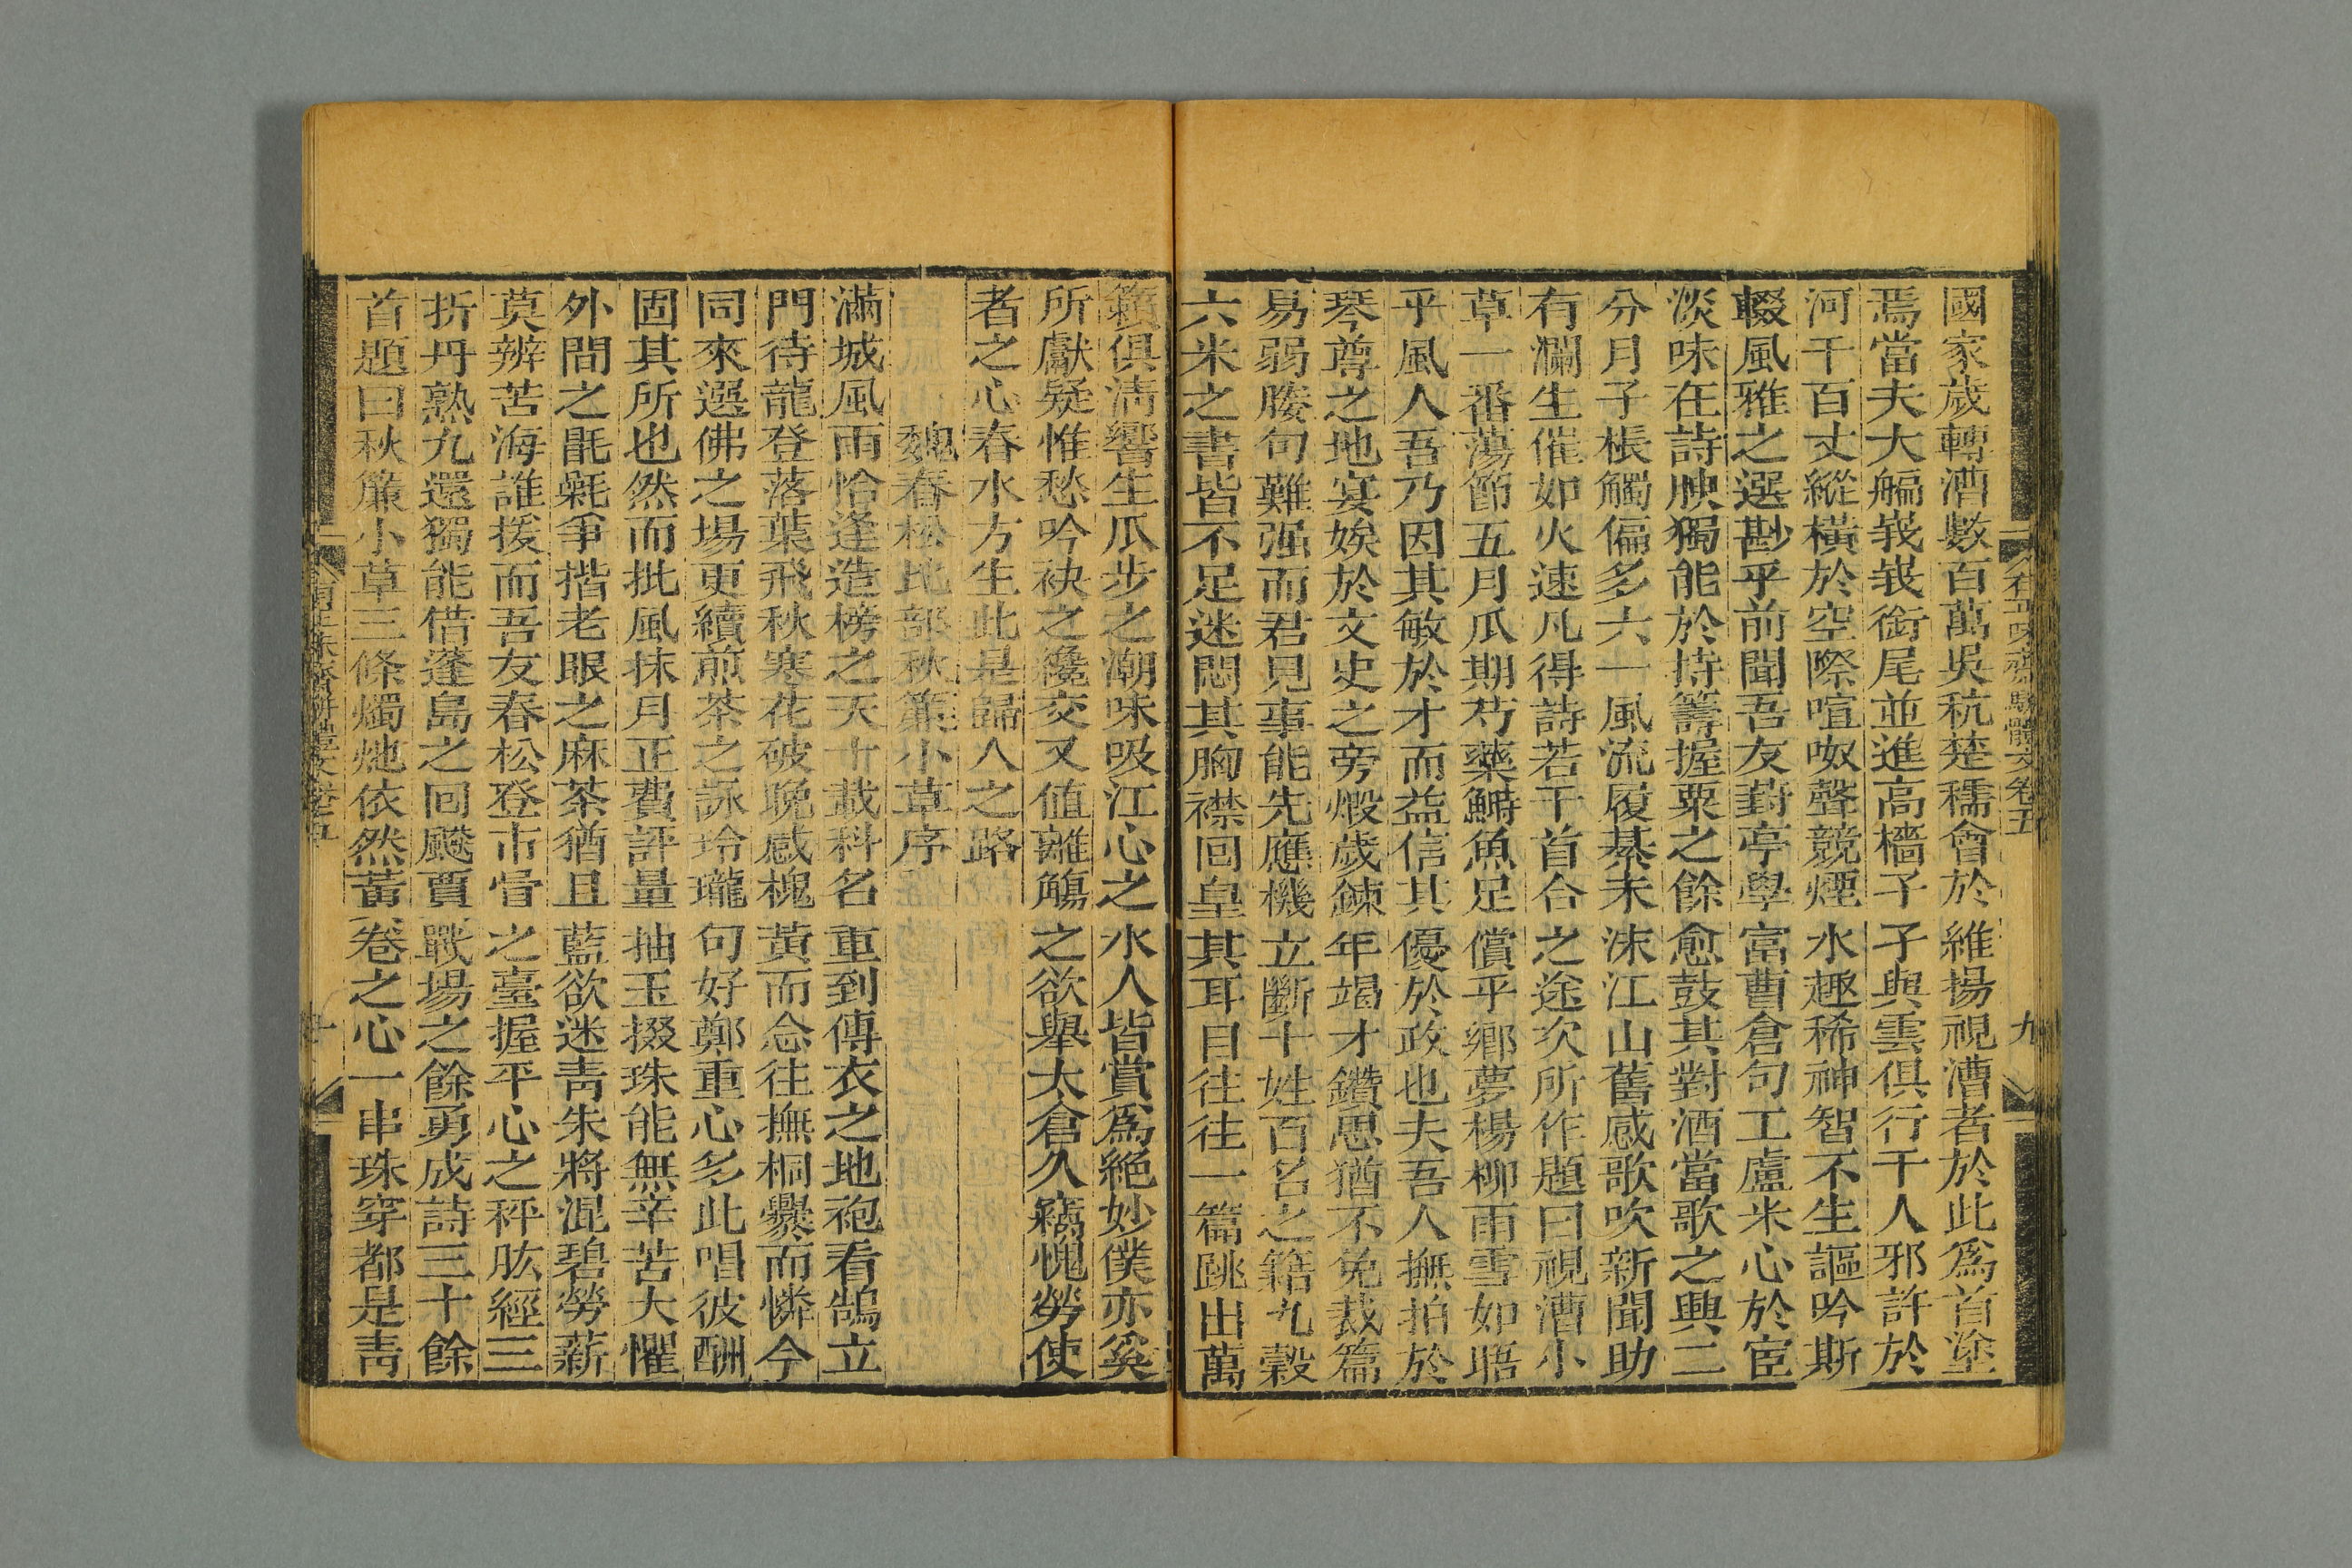 國家歲轉漕數百萬吳秔楚穤會於維揚視漕者於此爲首塗
焉當夫大艑峩峩銜尾並進高檣子子與雲俱行千人邪許於
河干百丈縱橫於空際喧呶聲競煙水趣稀神智不生謳吟斯
輟風雅之選尠乎前聞吾友葑亭學富曹倉句工盧米心於宦
淡味在詩腴獨能於持籌握粟之餘愈鼓其對酒當歌之興二
分月子棖觸偏多六一風流履綦未沫江山舊感歌吹新聞助
有瀾生催如火速凡得詩若干首合之途次所作題曰視漕小
草一番蕩節五月瓜期芍藥鰣魚足償平鄉夢楊柳雨雪如晤
乎風人吾乃因其敏於才而益信其優於政也夫吾人撫拍於
琴尊之地宴娭於文史之旁煅歲鍊年竭才鑽思猶不免裁篇
易弱媵句難强而君見事能先應機立斷十姓百名之籍九穀
六米之書皆不足迷悶其胸襟回皇其耳目往往一篇跳出萬
籟俱淸響生瓜步之潮味吸江心之水人皆賞爲絕妙僕亦奚
所獻疑惟愁吟袂之纔交又値離觴之欲舉太倉久竊愧勞使
者之心春水方生此是歸人之路
魏春松比部秋簾小草序
滿城風雨恰逢造榜之天廿載科名重到傳衣之地袍看鵠立
門待龍登落葉飛秋寒花破晚感槐黃而念往撫桐爨而憐今
同來選佛之場更續煎茶之詠玲瓏句好鄭重心多此唱彼酬
固其所也然而批風抹月正費評量抽玉掇珠能無辛苦大懼
外間之毷氉爭揩老眼之麻茶猶且藍欲迷靑朱將混碧勞薪
莫辨苦海誰援而吾友春松登巿骨之臺握平心之秤肱經三
折丹熟九還獨能借蓬島之回飇賈戰場之餘勇成詩三十餘
首題曰秋簾小草三條燭灺依然黃卷之心一串珠穿都是靑
有正味齋駢體文卷五 九
有正味齋駢體文卷五 十